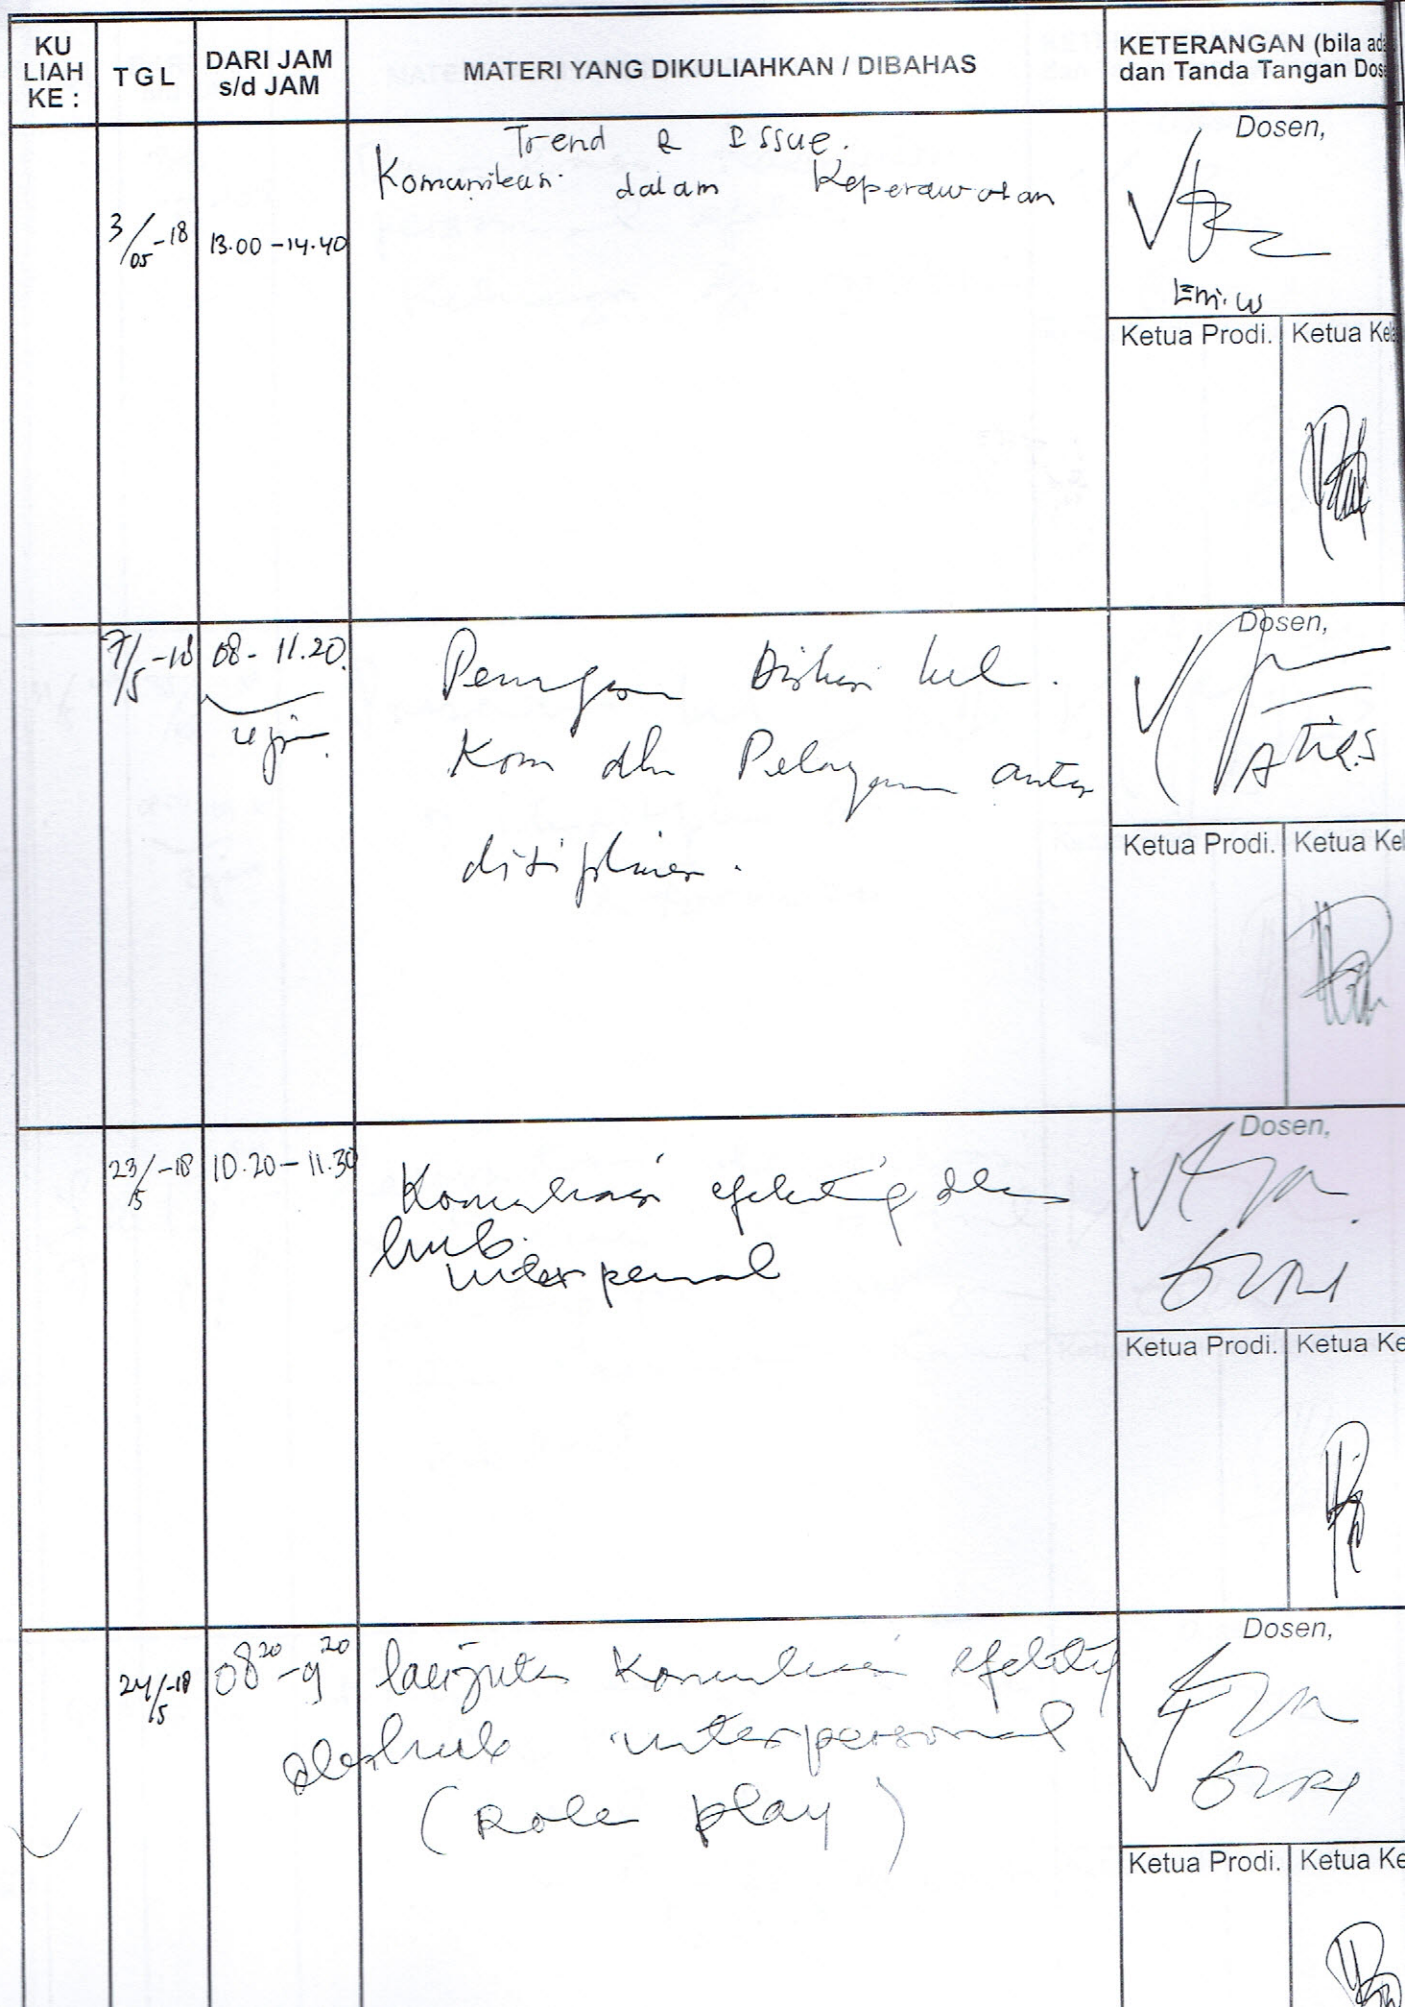 KU
LIAH
KE :
TGL
DARI JAM
s/d JAM
MATERI YANG DIKULIAHKAN / DIBAHAS
KETERANGAN (bila ada
dan Tanda Tangan Dos
Trend & Issue.
Komunikasi dalam Keperawatan
3/05-18
13.00 - 14.40
Dosen,
Eni. W
Ketua Prodi.
Ketua Kel
7/5-18
08 - 11.20
Kom dlm Pelayanan antar
disipliner.
Dosen,
Ketua Prodi.
Ketua Kel
23/5-18
10.20 - 11.30
Komunikasi efektif dlm
hub.
interpersonal
Dosen,
Ketua Prodi.
Ketua Ke
24/5-18
08²⁰ - 9²⁰
lanjutan Komunikasi efektif
dlm hub interpersonal
(Role play)
Dosen,
Ketua Prodi.
Ketua Ke